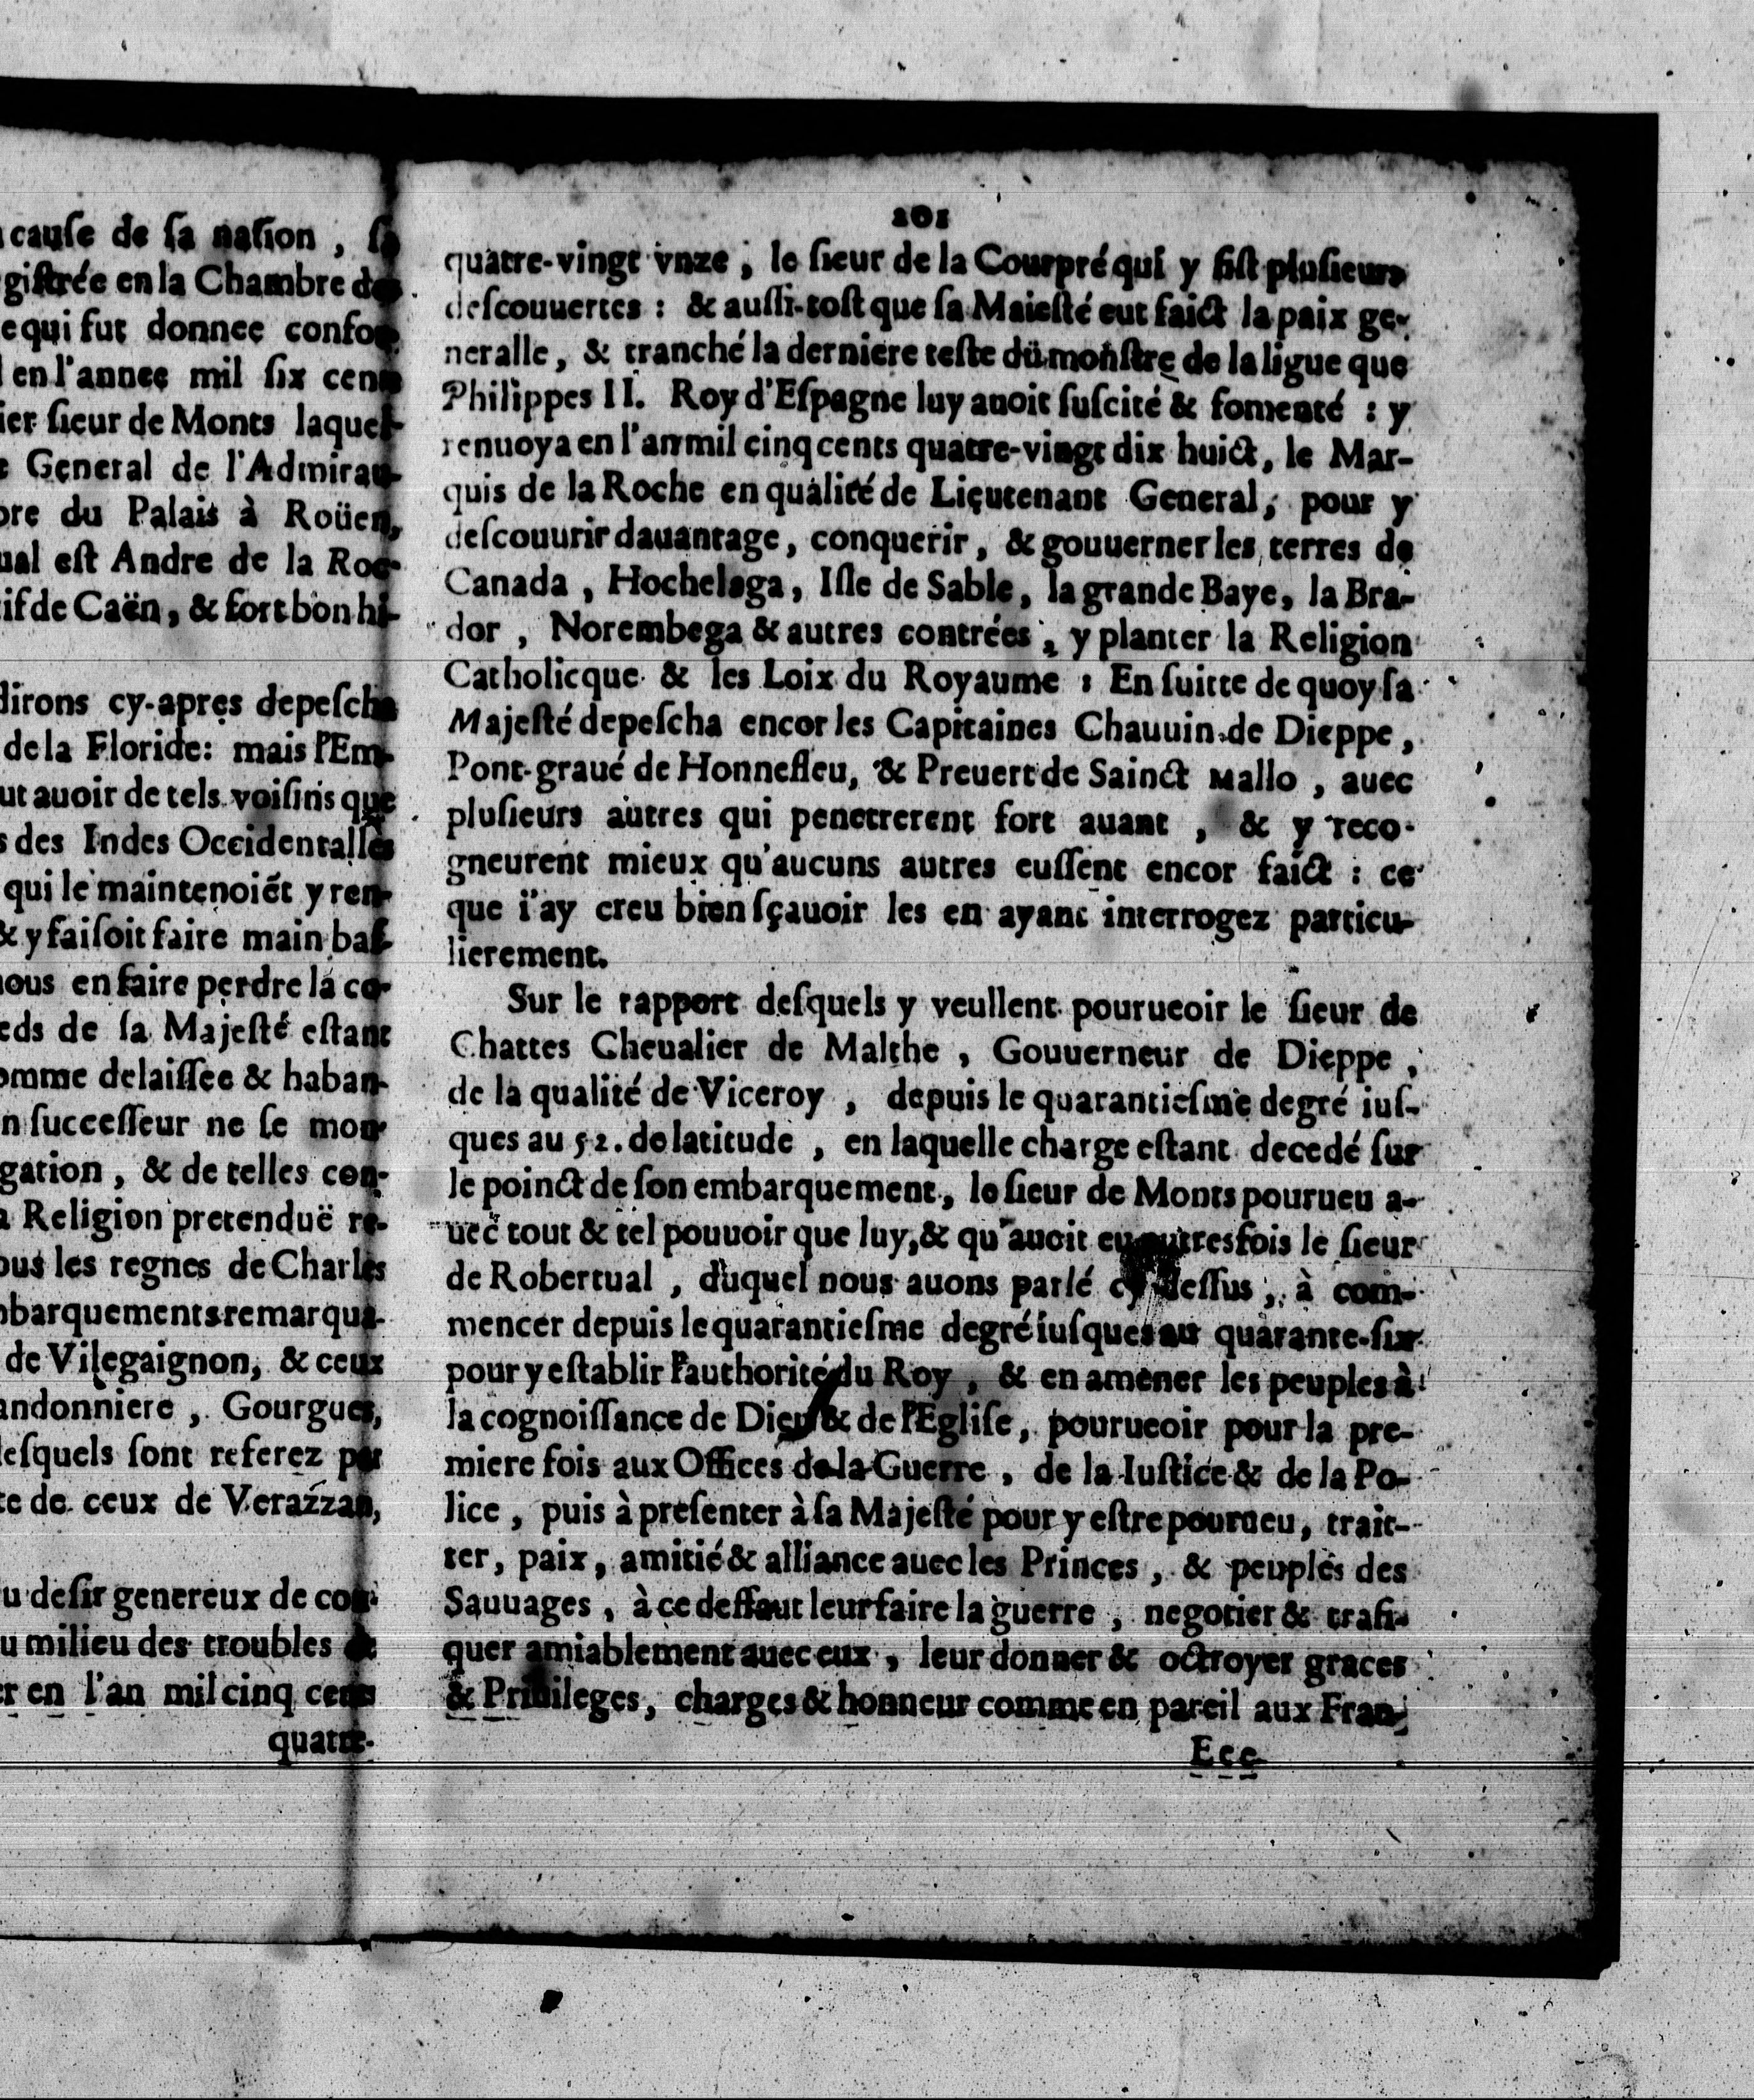 cauſe de ſa naſion ,
giſtrée en la Chambre des
e qui fut donnee confor
en l'annee mil ſix cents
ier ſieur de Monts laquel-
General de l'Admirau-
bre du Palais à Roüen,
ual eſt Andre de la Roc-
if de Caën, & fort bon hi-
dirons cy-apres depeſcha
de la Floride: mais l'Em-
ut auoir de tels voiſins que
s des Indes Occidentalles
qui le maintenoiẽt y ren-
& y faiſoit faire main baſ-
nous en faire perdre la co-
eds de ſa Majeſté eſtant
omme delaiſſee & haban-
n ſucceſſeur ne ſe mon-
gation , & de telles con-
a Religion pretenduë re-
ous les regnes de Charles
mbarquements remarqua-
de Vilegaignon, & ceux
andonniere , Gourgues,
leſquels ſont referez par
te de ceux de Verazzan,
u deſir genereux de con-
u milieu des troubles &
er en l'an mil cinq cens
quatre-
201
quatre-vingt vnze , le ſieur de la Courpré qui y fiſt pluſieurs
deſcouuertes : & auſſi-toſt que ſa Maieſté eut faict la paix ge-
neralle, & tranché la derniere teſte du monſtre de la ligue que
Philippes II. Roy d'Eſpagne luy auoit ſuſcité & fomenté : y
renuoya en l'an mil cinq cents quatre-vingt dix huict, le Mar-
quis de la Roche en qualité de Lieutenant General, pour y
deſcouurir dauantage, conquerir, & gouuerner les terres de
Canada , Hochelaga, Iſle de Sable, la grande Baye, la Bra-
dor , Norembega & autres contrées , y planter la Religion
Catholicque & les Loix du Royaume : En ſuitte de quoy ſa
Majeſté depeſcha encor les Capitaines Chauuin de Dieppe,
Pont-graué de Honnefleu, & Preuert de Sainct Mallo , auec
pluſieurs autres qui penetrerent fort auant , & y reco-
gneurent mieux qu'aucuns autres euſſent encor faict : ce
que i'ay creu bien ſçauoir les en ayant interrogez particu-
lierement.
Sur le rapport deſquels y veullent pourueoir le ſieur de
Chattes Cheualier de Malthe , Gouuerneur de Dieppe ,
de la qualité de Viceroy , depuis le quarantieſme degré iuſ-
ques au 52. de latitude , en laquelle charge eſtant decedé ſur
le poinct de ſon embarquement, le ſieur de Monts pourueu a-
uec tout & tel pouuoir que luy, & qu'auoit eu autresfois le ſieur
de Robertual , duquel nous auons parlé cy deſſus, à com-
mencer depuis le quarantieſme degré iuſques au quarante-ſix
pour y eſtablir l'authorité du Roy , & en amener les peuples à
la cognoiſſance de Dieu & de l'Egliſe, pourueoir pour la pre-
miere fois aux Offices de la Guerre , de la Iuſtice & de la Po-
lice , puis à preſenter à ſa Majeſté pour y eſtre pourueu, trait-
ter, paix, amitié & alliance auec les Princes , & peuples des
Sauuages , à ce deffaut leur faire la guerre , negotier & trafi-
quer amiablement auec eux , leur donner & octroyer graces
& Priuileges, charges & honneur comme en pareil aux Fran-
Eee